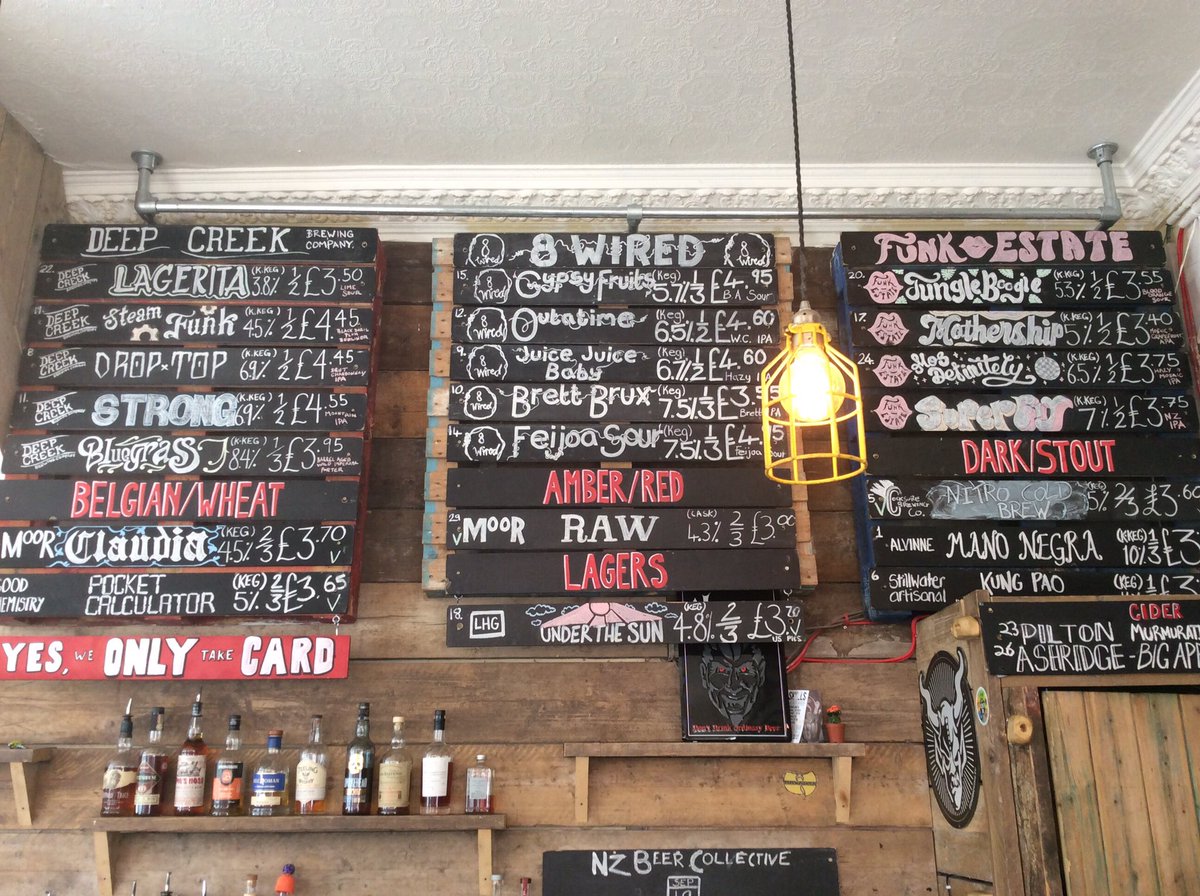 DEEP CREEK BREWING COMPANY.
22. DEEP CREEK LAGERITA (K.KEG) 3.8% 1/2 £3.50 LIME SOUR
DEEP CREEK Steam Funk (K.KEG) 4.5% 1/2 £4.45
8 DEEP CREEK DROP×TOP (K.KEG) 6.9% 1/2 £4.45 BRUT CHARDONNAY IPA
11. DEEP CREEK STRONG (K.KEG) 6.9% 1/2 £4.55 MOUNTAIN IPA
DEEP CREEK Bluegrass J (K-KEG) 8.4% 1/3 £3.95 BARREL AGED WILD IMPERIAL PORTER
BELGIAN/WHEAT
MOOR Claudia (KEG) 4.5% 2/3 £3.70 V
GOOD CHEMISTRY POCKET CALCULATOR (KEG) 5% 2/3 £3.65 V
YES, WE ONLY TAKE CARD
8 Wired 8 WIRED 8 Wired
15. 8 Wired Gypsy Fruits (Keg) 5.7% 1/3 £4.95 B A Sour
12. 8 Wired Outatime (Keg) 6.5% 1/2 £4.60 W.C. IPA
9. 8 Wired Juice Juice Baby (Keg) 6.7% 1/2 £4.60 Hazy
10. 8 Wired Brett Brux (Keg) 7.5% 1/3 £3. Brett
14. 8 Wired Feijoa Sour (Keg) 7.5% 1/3 £4. Feijoa
AMBER/RED
29 V MOOR RAW (CASK) 4.3% 2/3 £3.00
LAGERS
18. LHG UNDER THE SUN (KEG) 4.8% 2/3 £3.70 V
Don't Drink Ordinary Beer
FUNK ESTATE
20. FUNK Jungle Boogie (K.KEG) 5.3% 1/2 £3.55 BLOOD ORANGE SOUR
17. FUNK Mothership (K.KEG) 5% 1/2 £3.40 IPA
24. FUNK Yes Definitely (K.KEG) 6.5% 1/2 £3.75 HAZY MOSAIC IPA
FUNK Super (K.KEG) 7% 1/2 £3.75 NZ IPA
DARK/STOUT
5 V BREWING Co. NITRO COLD BREW (KEG) 5% 2/3 £3.60
1 ALVINNE MANO NEGRA (KKEG) 10% 1/3 £3
6 Stillwater artisanal KUNG PAO (K.KEG) 1/3 £3
CIDER
23 PILTON MURMURAT
26 ASHRIDGE - BIG APP
NZ BEER COLLECTIVE
SEP